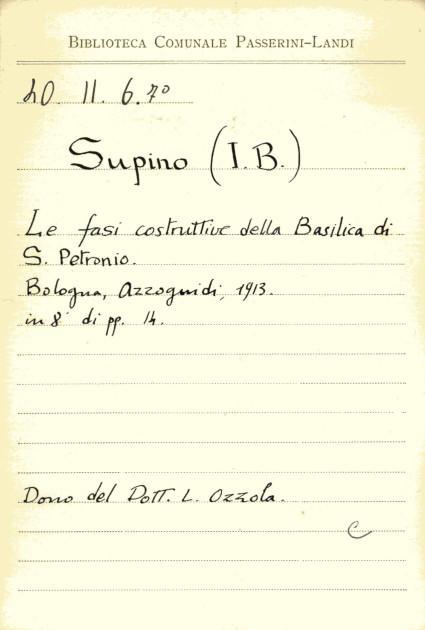 BIBLIOTECA COMUNALE PASSERINI-LANDI
20. II. 6. 7º
Supino (I.B.)
Le fasi costruttive della Basilica di
S. Petronio.
Bologna, Azzoguidi, 1913.
in 8° di pp. 14.
Dono del Dott. L. Ozzola.
C